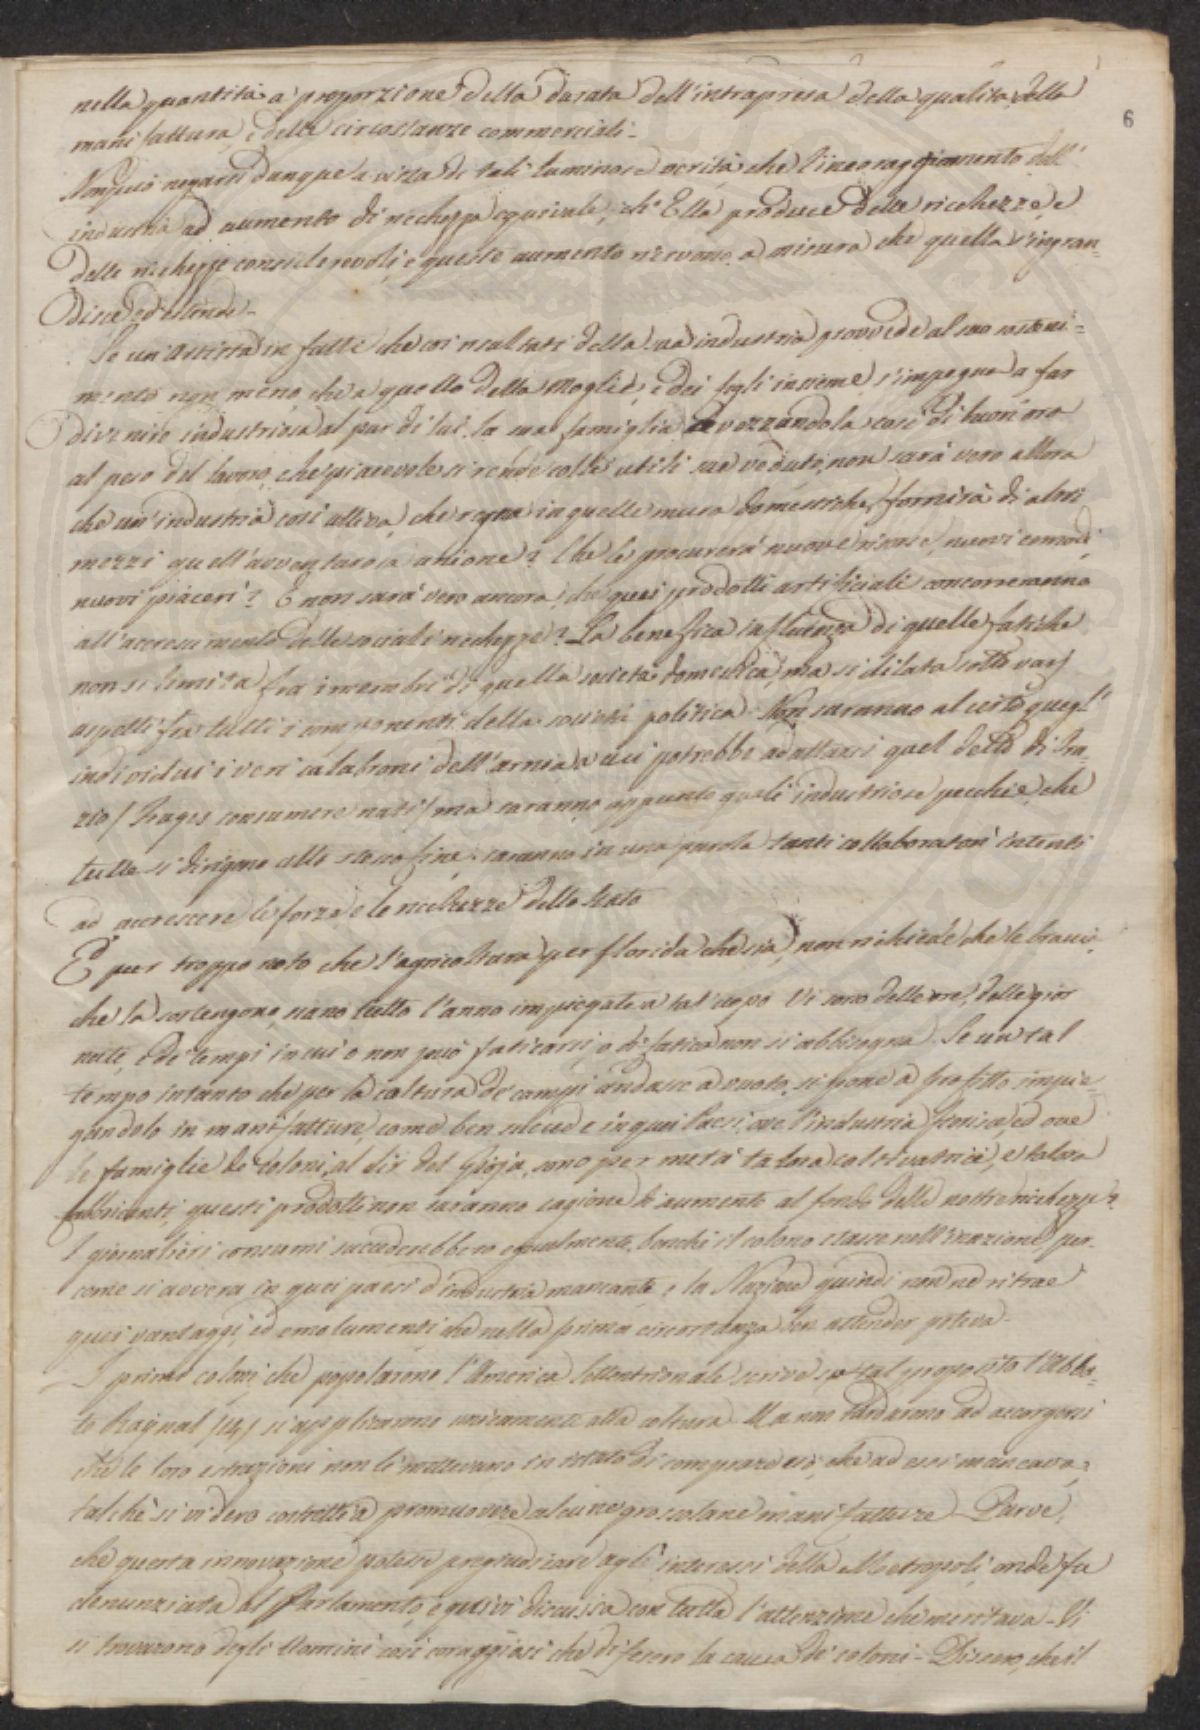 6
nella quantità a proporzione della durata dell'intrapresa della qualità della
manifattura, e delle circostanze commerciali.
Non può negarsi dunque a vista di tali luminose verità che l'incoraggiamento dell'
industria ad aumento di ricchezza equivale, ch'Ella produce delle ricchezze, e
delle ricchezze considerevoli, e queste aumento ricevono a misura che quella s'ingran=
disce, ed estende.
Se un artista in fatti che coi risultati della sua industria provvede al suo sosteni=
mento non meno, che a quello della Moglie, e dei figli insieme, s'impegna a far
divenire industriosa al par di lui la sua famiglia avvezzandola così di buon'ora
al peso del lavoro, che piacevole si rende colle utili sue vedute, non sarà vero allora
che un'industria così attiva, che regna in quelle mura domestiche, fornirà di altri
mezzi quell'avventurosa unione? Che le procurerà nuove risorse, nuovi comodi,
nuovi piaceri? E non sarà vero ancora, che quei prodotti artificiali concorreranno
all'accrescimento delle sociali ricchezze? La benefica influenza di quelle fatiche
non si limita fra i membri di quella società domestica, ma si dilata sotto varj
aspetti fra tutti i componenti della società politica. Non saranno al certo quegl'
individui i veri calabroni dell'arnia a cui potrebbe adattarsi quel detto di Ora=
zio / fruges consumere nati / ma saranno appunto quali industriose pecchie, che
tutte si dirigono allo stesso fine: saranno in una parola tanti collaboratori intenti
ad accrescere le forze, e le ricchezze dello Stato
E' pur troppo noto che l'agricoltura per florida che sia, non richiede che le braccia,
che la sostengono, siano tutto l'anno impiegate a tal uopo. Vi sono delle ore, delle gior
nate, e de' tempi in cui o non può faticarsi, o di fatica non si abbisogna. Se un tal
tempo intanto che per la coltura de' campi andasse a vuoto, si pone a profitto impie=
gandolo in manifatture, come ben succede in quei Paesi, ove l'industria fiorisce, ed ove
le famiglie de' coloni, al dir del Gioja, sono per metà talora coltivatrici, e talora
fabbricanti, questi prodotti non saranno cagione di aumento al fondo delle nostre ricchezze?
I giornalieri consumi succederebbero egualmente, benchè il colono stasse nell'inazione, per
come si avvera in quei paesi d'industria mancante, e la Nazione quindi non ne ritrae
quei vantaggi, ed emolumenti, che nella prima circostanza ben attender poteva.
I primi coloni, che popolarono l'America Settentrionale scrive a tal proposito l'Abba=
te Raynal (14) si applicarono unicamente alla coltura. Ma non tardarono ad accorgersi
che le loro estrazioni non li mettevano in istato di comprare ciò, che ad essi mancava;
talchè si videro costretti a promuovere alcune grossolane manifatture. Parve,
che questa innovazione potesse pregiudicare agli interessi della Metropoli, onde fu
denunziata al Parlamento, e quivi discussa con tutta l'attenzione che meritava. Vi
si trovarono degli Uomini così coraggiosi che difesero la causa de' coloni. Dissero, che il